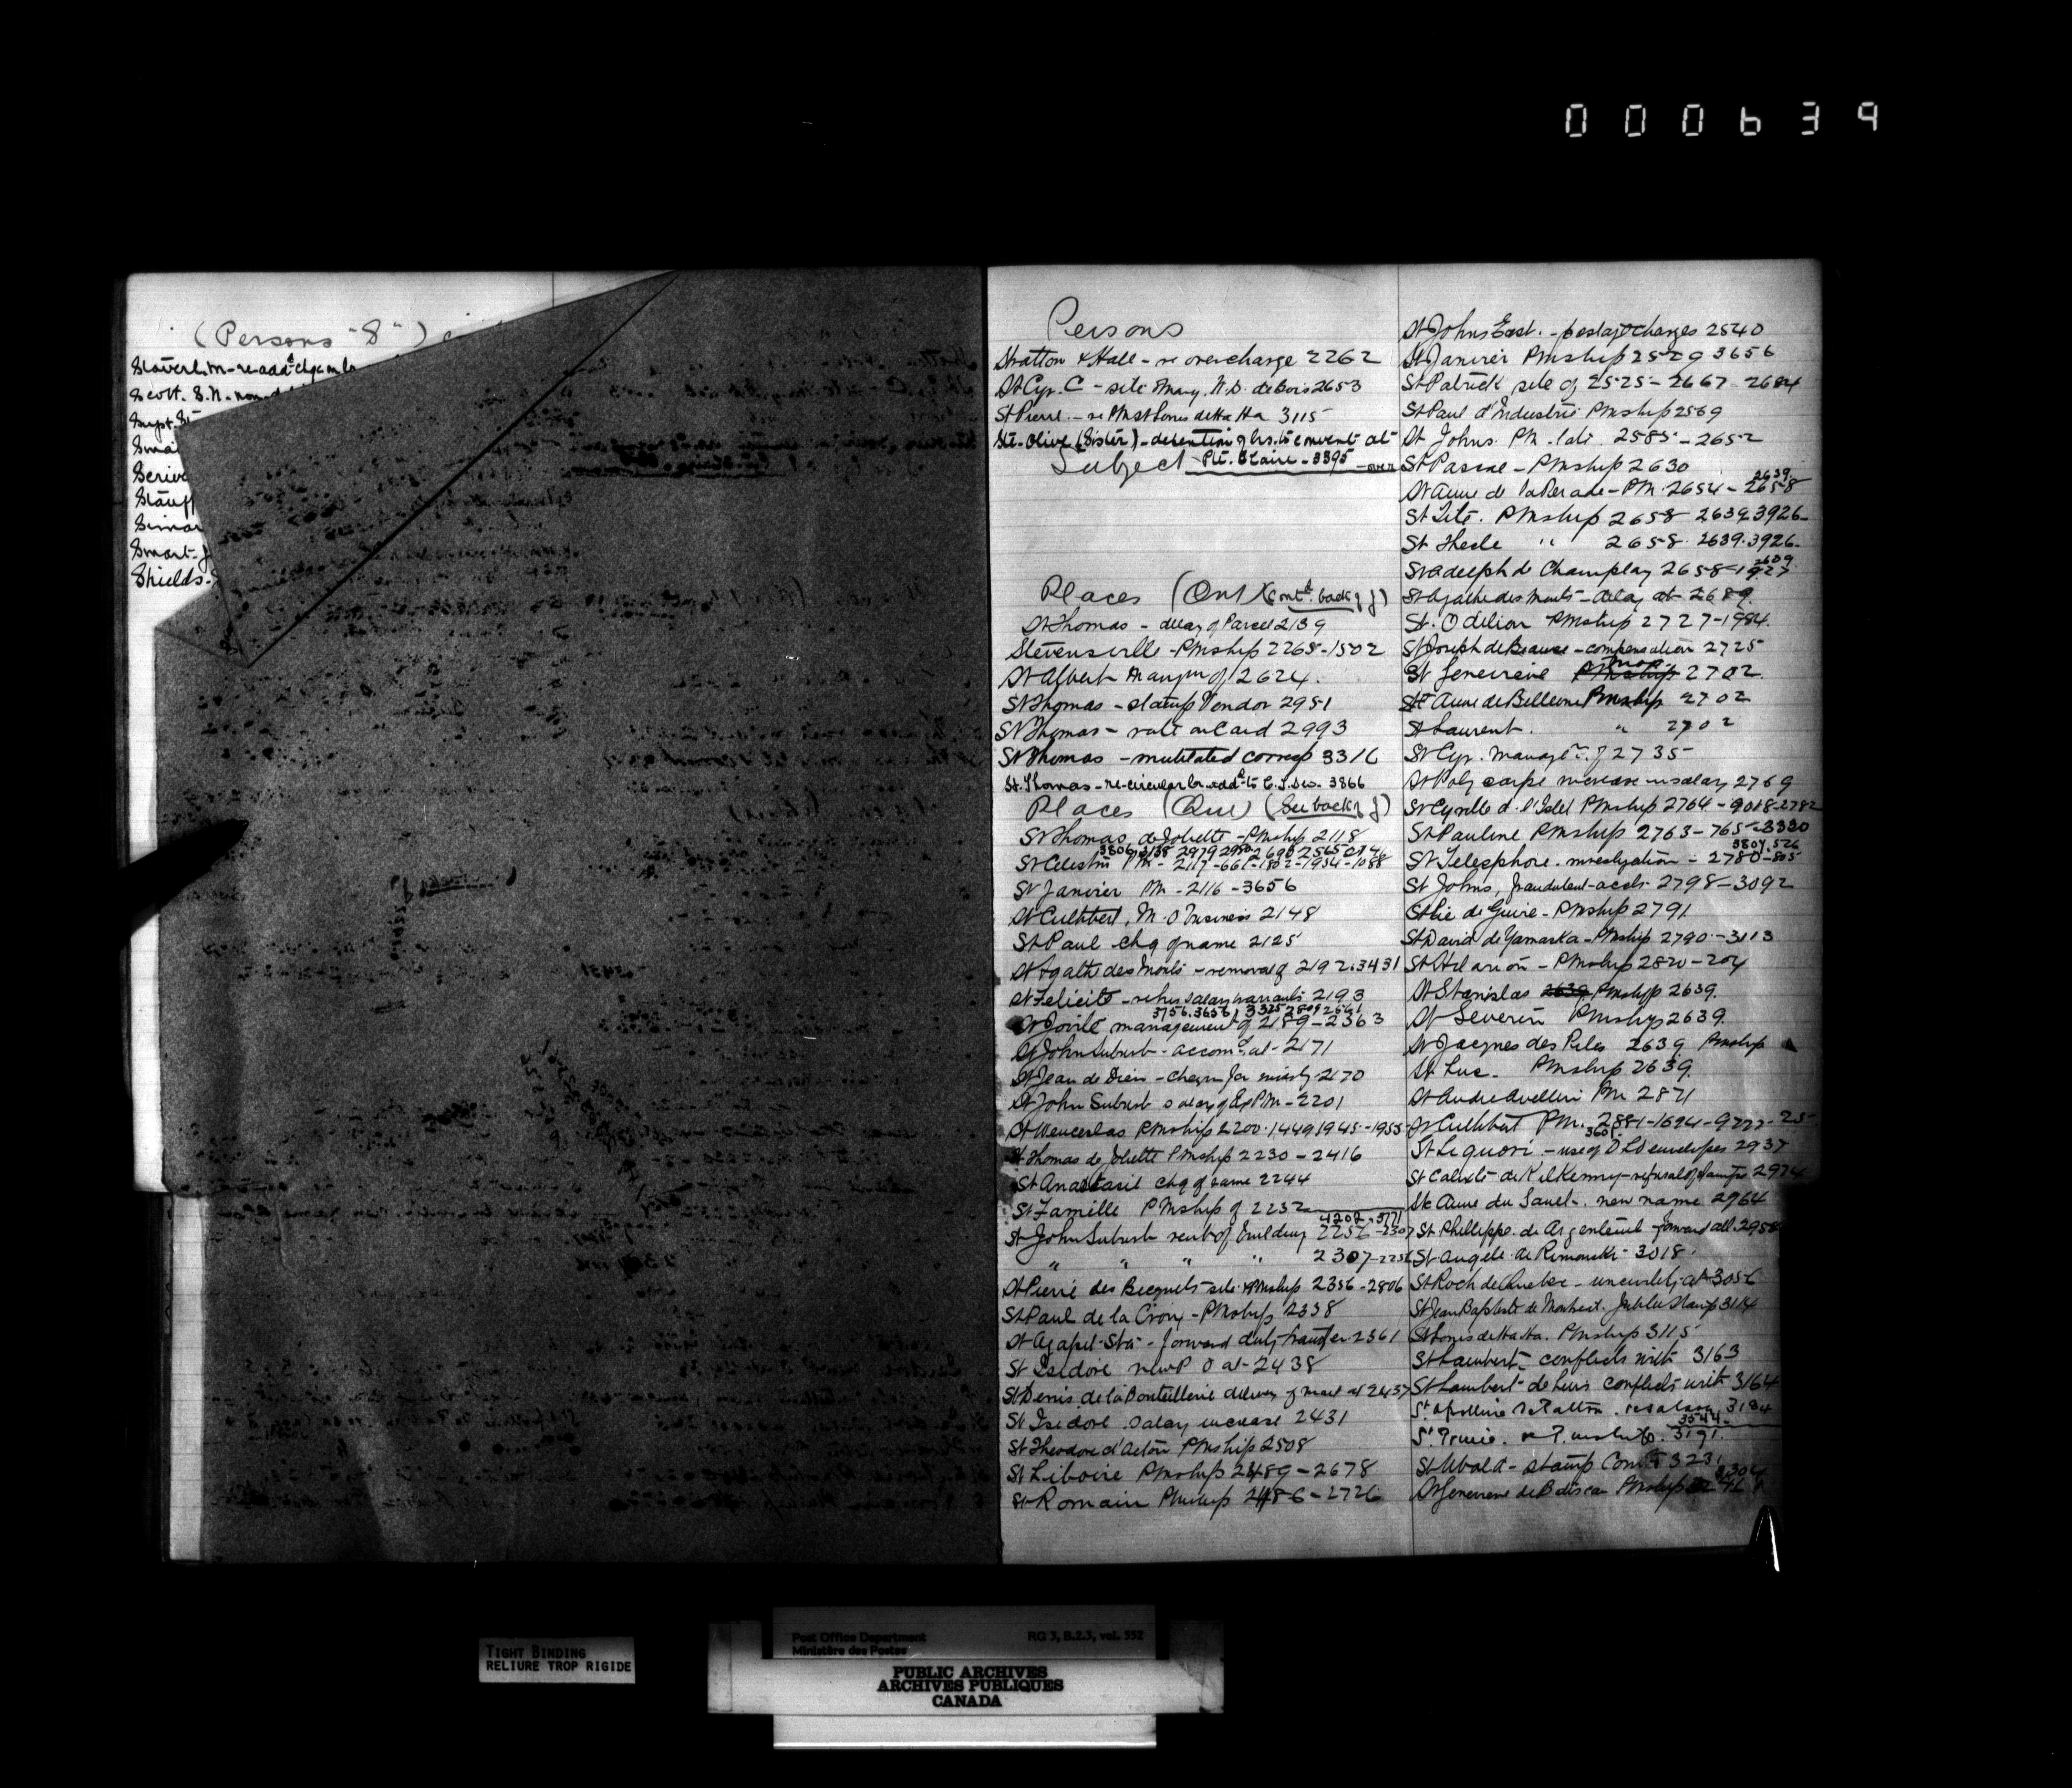 000639
(Persons "S")
Staverl, M - re add'l chge on
Scott. S.N. -
Supt.
Smart-
Shields-
Persons
Stratton & Hall - re overcharge 2262
St Cyr. C - site Mang. N.D. de Bois 2653
St Pierre. - re PM St Louis de Ha Ha 3115
Ste. Olive (Sister) - detention of lrs. to convent at
Subject Pte. Claire - 3395 - over
Places (Ont) (Contd. back of f)
St Thomas - delay of Parcel 2139
Stevensville - PMship 2268-1502
St Albert Mangm of 2624.
St Thomas - stamp Vendor 2951
St Thomas - rate on Card 2993
St Thomas - mutilated corresp 3316
St. Thomas - re circular lr. add'd to 3866
Places (Que) (See back of f)
St Thomas de Joliette - PMship 2118
St Celestin PM - 2117-661-1802-1954-1088
St Janvier PM - 2116-3656
St Cuthbert, M.O business 2148
St Paul chg of name 2125
St Agathe des Monts - removal of 2192.3431
St Felicite - salary warrants 2193
St Jovite management of 2189-2363
St John Suburb - accomn. at - 2171
St Jean de Dieu - 2170
St John Suburb salary of Ex PM - 2201
St Wencerlas PMship 2200.1449 1945-1955
St Thomas de Joliette PMship 2230-2416
St Anastasie chg of name 2244
St Famille PMship of 2232
4202-3771
St John Suburb rent of Building 2256-2307
" " " 2307-2256
St Pierre des Becquets site & PMship 2356-2806
St Paul de la Croix - PMship 2338
St Agapit Sta - forward duly transfer 2361
St Isidore new P O at - 2438
St Denis de la Bouteillerie delivery of mail at 2437
St Isidore salary increase 2431
St Theodore d'Acton PMship 2508
St Liboire PMship 2489-2678
St Romain PMship 2486-2726
St Johns East. - postage charges 2540
St Janvier PMship 2529 3656
St Patrick site of 2525-2667-2684
St Paul d'Industrie PMship 2569
St Johns. PM. 2585-2652
St Pascal - PMship 2630
2639
St Anne de la Perade - PM. 2654-2658
St Tite. PMship 2658 2639.3926-
St Thecle " 2658. 2639.3926-
St Adelph de Champlay 2658-1927
St Agathe des Monts - delay at 2689.
St. Odilion PMship 2727-1984.
St Joseph de Beauce - compensation 2725
St Genevieve PMship 2702.
St Anne de Bellevue PMship 2702
St Laurent. " 2702
St Cyr. managt. of 2735
St Polycarpe increase in salary 2769
St Cyrille d. l'Islet PMship 2764-
St Pauline PMship 2763-765-3330
3807.526
St Telesphore. investigation - 2780-805
St Johns, fraudulent accts. 2798-3092
St Pie de Guire - PMship 2791
St David de Yamaska - PMship 2790-3113
St Hilarion - PMship 2820-204
St Stanislas 2639 PMship 2639.
St Severin PMship 2639.
St Jacques des Piles 2639 PMship
St Luc - PMship 2639.
St Andre Avellin PM 2871
St Cuthbert PM. 2881-1694-
St Liguori - use of DLO envelopes 2937
St Calixte de Kilkenny - refusal of stamps 2974
Ste Anne du Sault - new name 2964
St Phillippe de Argenteuil - forward all. 2958
St Angele de Rimouski - 3018.
St Roch de Quebec - uncivility at 3056
St Jean Baptiste de Montreal. Jubilee Stamp 3114
St Louis de Ha Ha. PMship 3115
St Lambert - conflicts with 3163
St Lambert de Levis conflicts with 3164
St Apolline de Patton. re salary 3184
3544-
3191.
St Ubald - stamp Com. 3231
St Genevieve de Batiscan PMship
TIGHT BINDING
RELIURE TROP RIGIDE
Post Office Department
Ministère des Postes
RG 3, B.2.3, vol. 552
PUBLIC ARCHIVES
ARCHIVES PUBLIQUES
CANADA